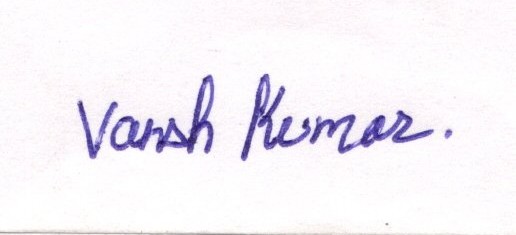 Vansh Kumar.